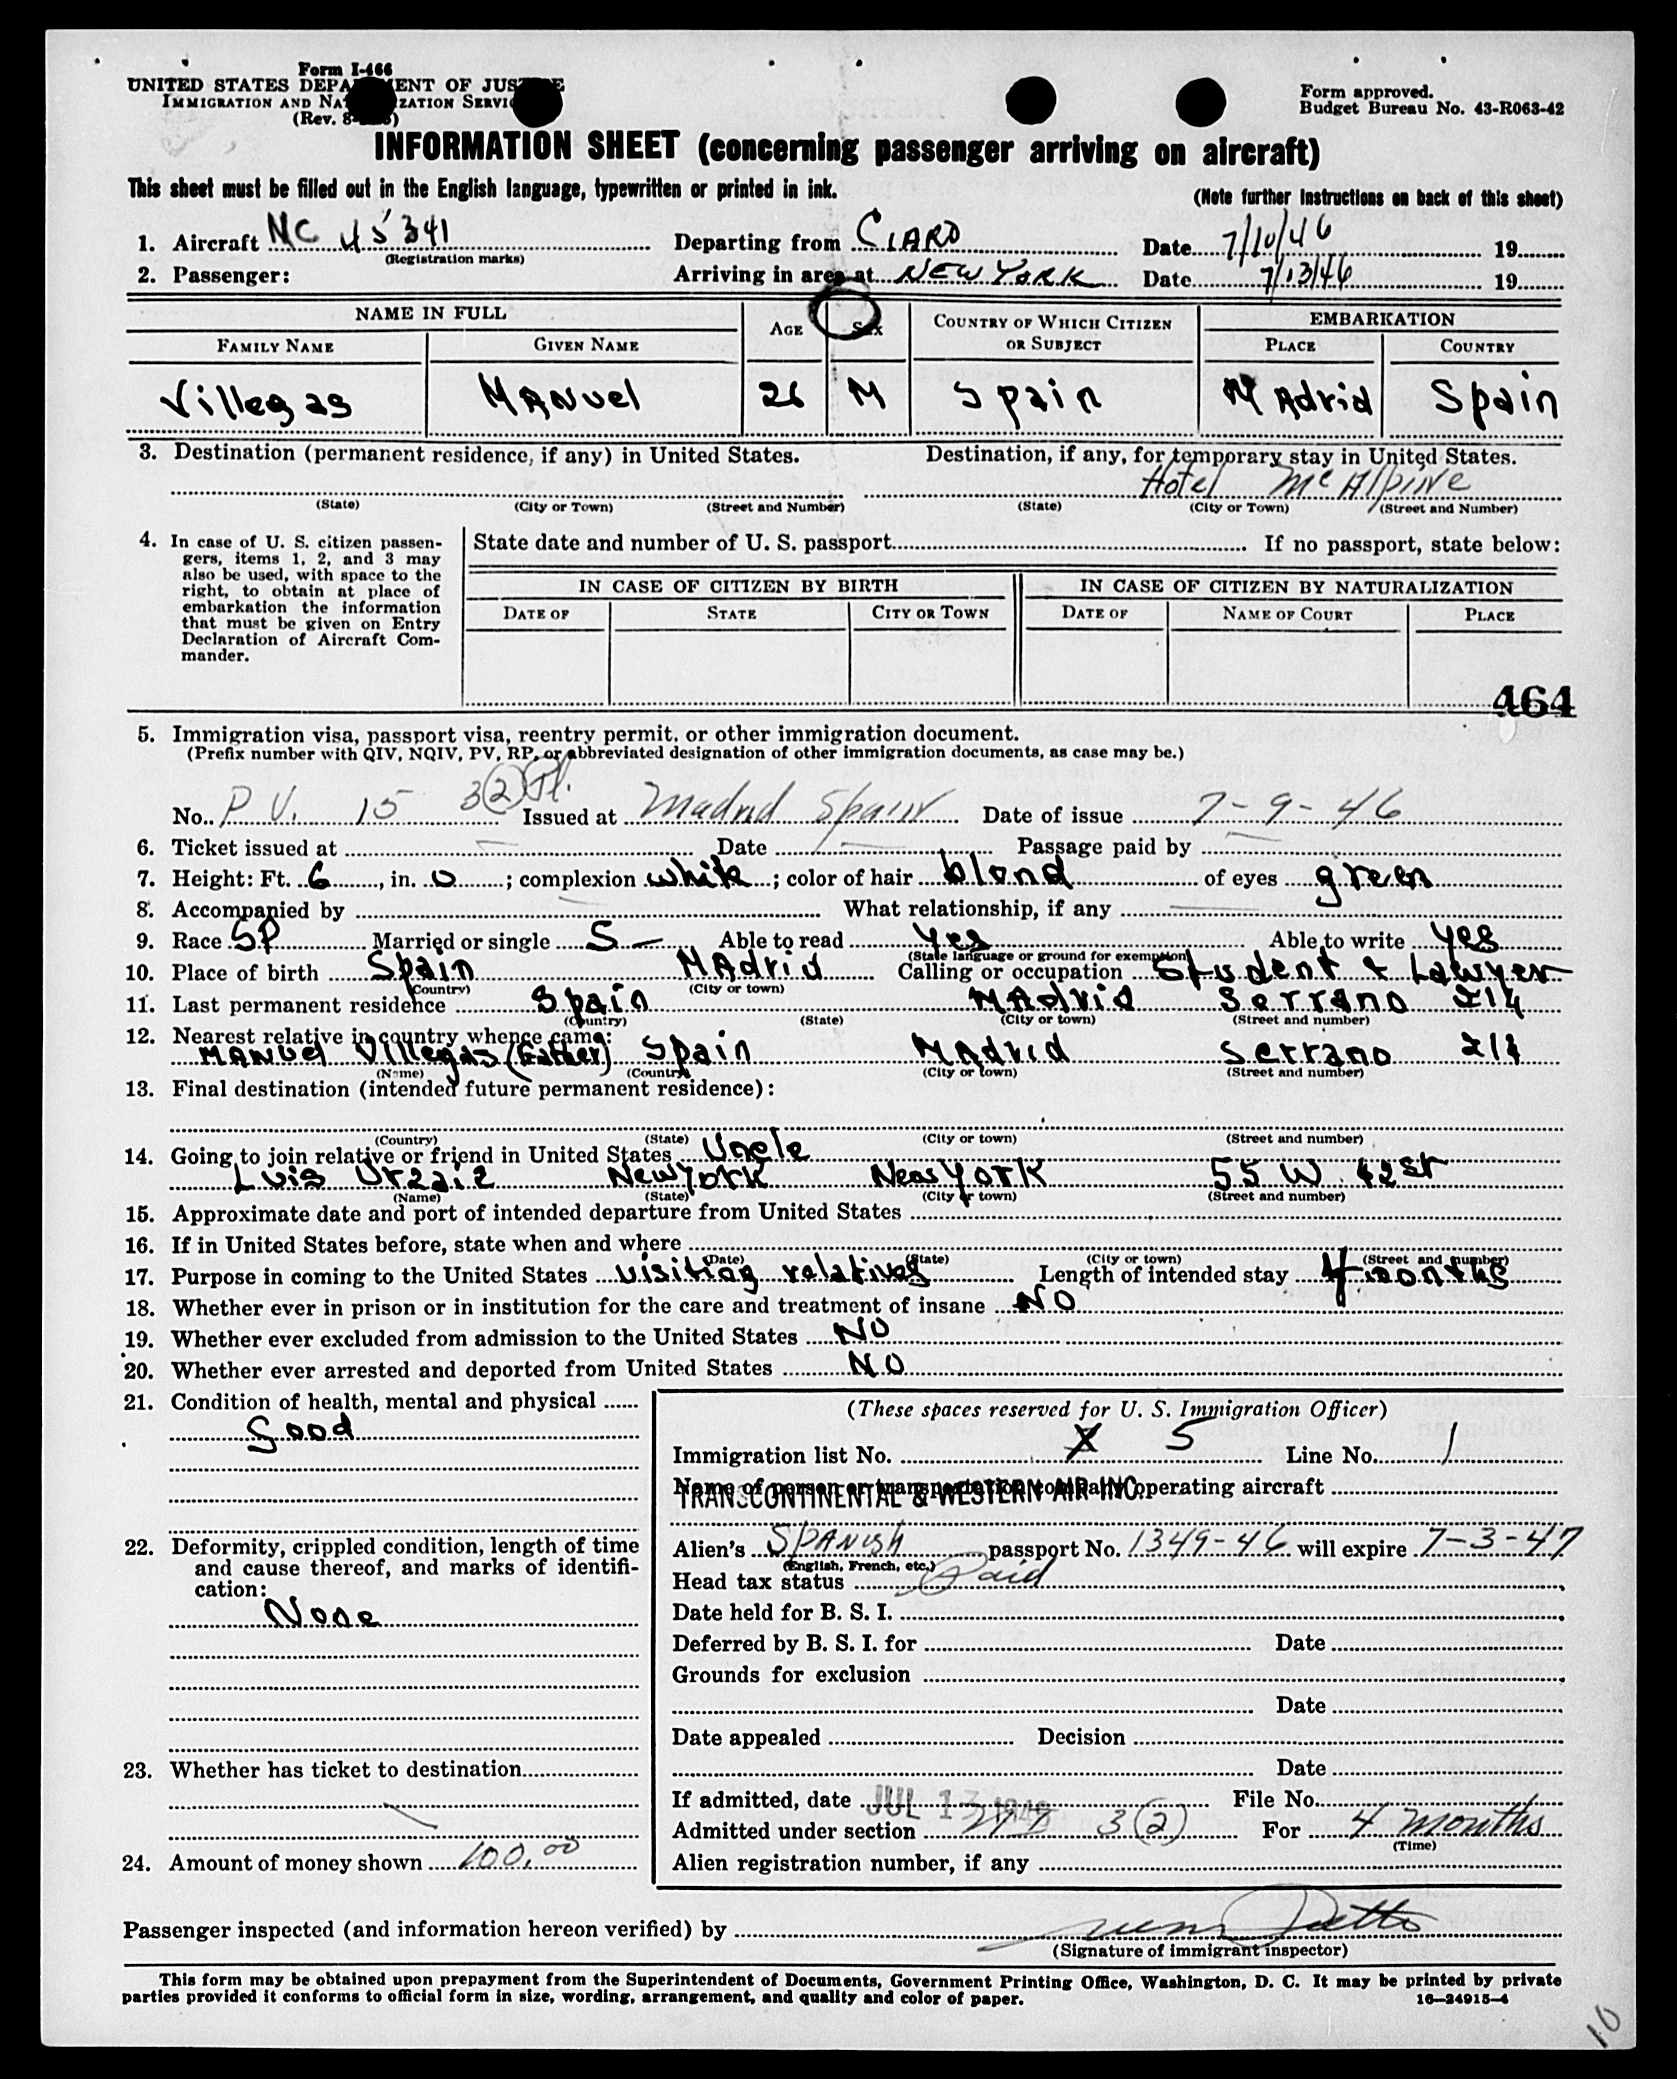 Form I-466
UNITED STATES DEPARTMENT OF JUSTICE
IMMIGRATION AND NATURALIZATION SERVICE
(Rev. 8-
Form approved.
Budget Bureau No. 43-R063-42
INFORMATION SHEET (concerning passenger arriving on aircraft)
This sheet must be filled out in the English language, typewritten or printed in ink.
(Note further instructions on back of this sheet)
1. Aircraft NC 45341 Departing from CIARO Date 7/10/46 19
(Registration marks)
2. Passenger: Arriving in area at NEW YORK Date 7/13/46 19
NAME IN FULL AGE SEX COUNTRY OF WHICH CITIZEN OR SUBJECT EMBARKATION
FAMILY NAME GIVEN NAME PLACE COUNTRY
Villegas MANuel 26 M Spain MAdrid Spain
3. Destination (permanent residence, if any) in United States. Destination, if any, for temporary stay in United States.
Hotel McAlpine
(State) (City or Town) (Street and Number) (State) (City or Town) (Street and Number)
4. In case of U. S. citizen passen-
gers, items 1, 2, and 3 may
also be used, with space to the
right, to obtain at place of
embarkation the information
that must be given on Entry
Declaration of Aircraft Com-
mander.
State date and number of U. S. passport If no passport, state below:
IN CASE OF CITIZEN BY BIRTH IN CASE OF CITIZEN BY NATURALIZATION
DATE OF STATE CITY OR TOWN DATE OF NAME OF COURT PLACE
464
5. Immigration visa, passport visa, reentry permit, or other immigration document.
(Prefix number with QIV, NQIV, PV, RP, or abbreviated designation of other immigration documents, as case may be.)
No. P.V. 15 3(2) Issued at Madrid Spain Date of issue 7-9-46
6. Ticket issued at — Date — Passage paid by —
7. Height: Ft. 6, in. 0; complexion white; color of hair blond of eyes green
8. Accompanied by — What relationship, if any —
9. Race SP Married or single S — Able to read yes Able to write yes
(State language or ground for exemption)
10. Place of birth Spain MAdrid Calling or occupation Student & Lawyer
(Country) (City or town)
11. Last permanent residence Spain MAdrid Serrano 214
(Country) (State) (City or town) (Street and number)
12. Nearest relative in country whence came:
MANuel Villegas (Father) Spain MAdrid Serrano 214
(Name) (Country) (City or town) (Street and number)
13. Final destination (intended future permanent residence):
(Country) (State) (City or town) (Street and number)
14. Going to join relative or friend in United States Uncle
Luis Urzaiz New York New York 55 W 42 St
(Name) (State) (City or town) (Street and number)
15. Approximate date and port of intended departure from United States
16. If in United States before, state when and where
(Date) (State) (City or town) (Street and number)
17. Purpose in coming to the United States visiting relatives Length of intended stay 4 months
18. Whether ever in prison or in institution for the care and treatment of insane NO
19. Whether ever excluded from admission to the United States NO
20. Whether ever arrested and deported from United States NO
21. Condition of health, mental and physical
Good
22. Deformity, crippled condition, length of time
and cause thereof, and marks of identifi-
cation:
None
23. Whether has ticket to destination
24. Amount of money shown 100.00
(These spaces reserved for U. S. Immigration Officer)
Immigration list No. X 5 Line No. 1
Name of person or transportation company operating aircraft
TRANSCONTINENTAL & WESTERN AIR INC.
Alien's SPANISH passport No. 1349-46 will expire 7-3-47
(English, French, etc.)
Head tax status Paid
Date held for B. S. I.
Deferred by B. S. I. for Date
Grounds for exclusion
Date
Date appealed Decision
Date
If admitted, date JUL 13 1946 File No.
Admitted under section 3(2) For 4 months
(Time)
Alien registration number, if any
Passenger inspected (and information hereon verified) by
(Signature of immigrant inspector)
This form may be obtained upon prepayment from the Superintendent of Documents, Government Printing Office, Washington, D. C. It may be printed by private
parties provided it conforms to official form in size, wording, arrangement, and quality and color of paper.
16—24915-4
10